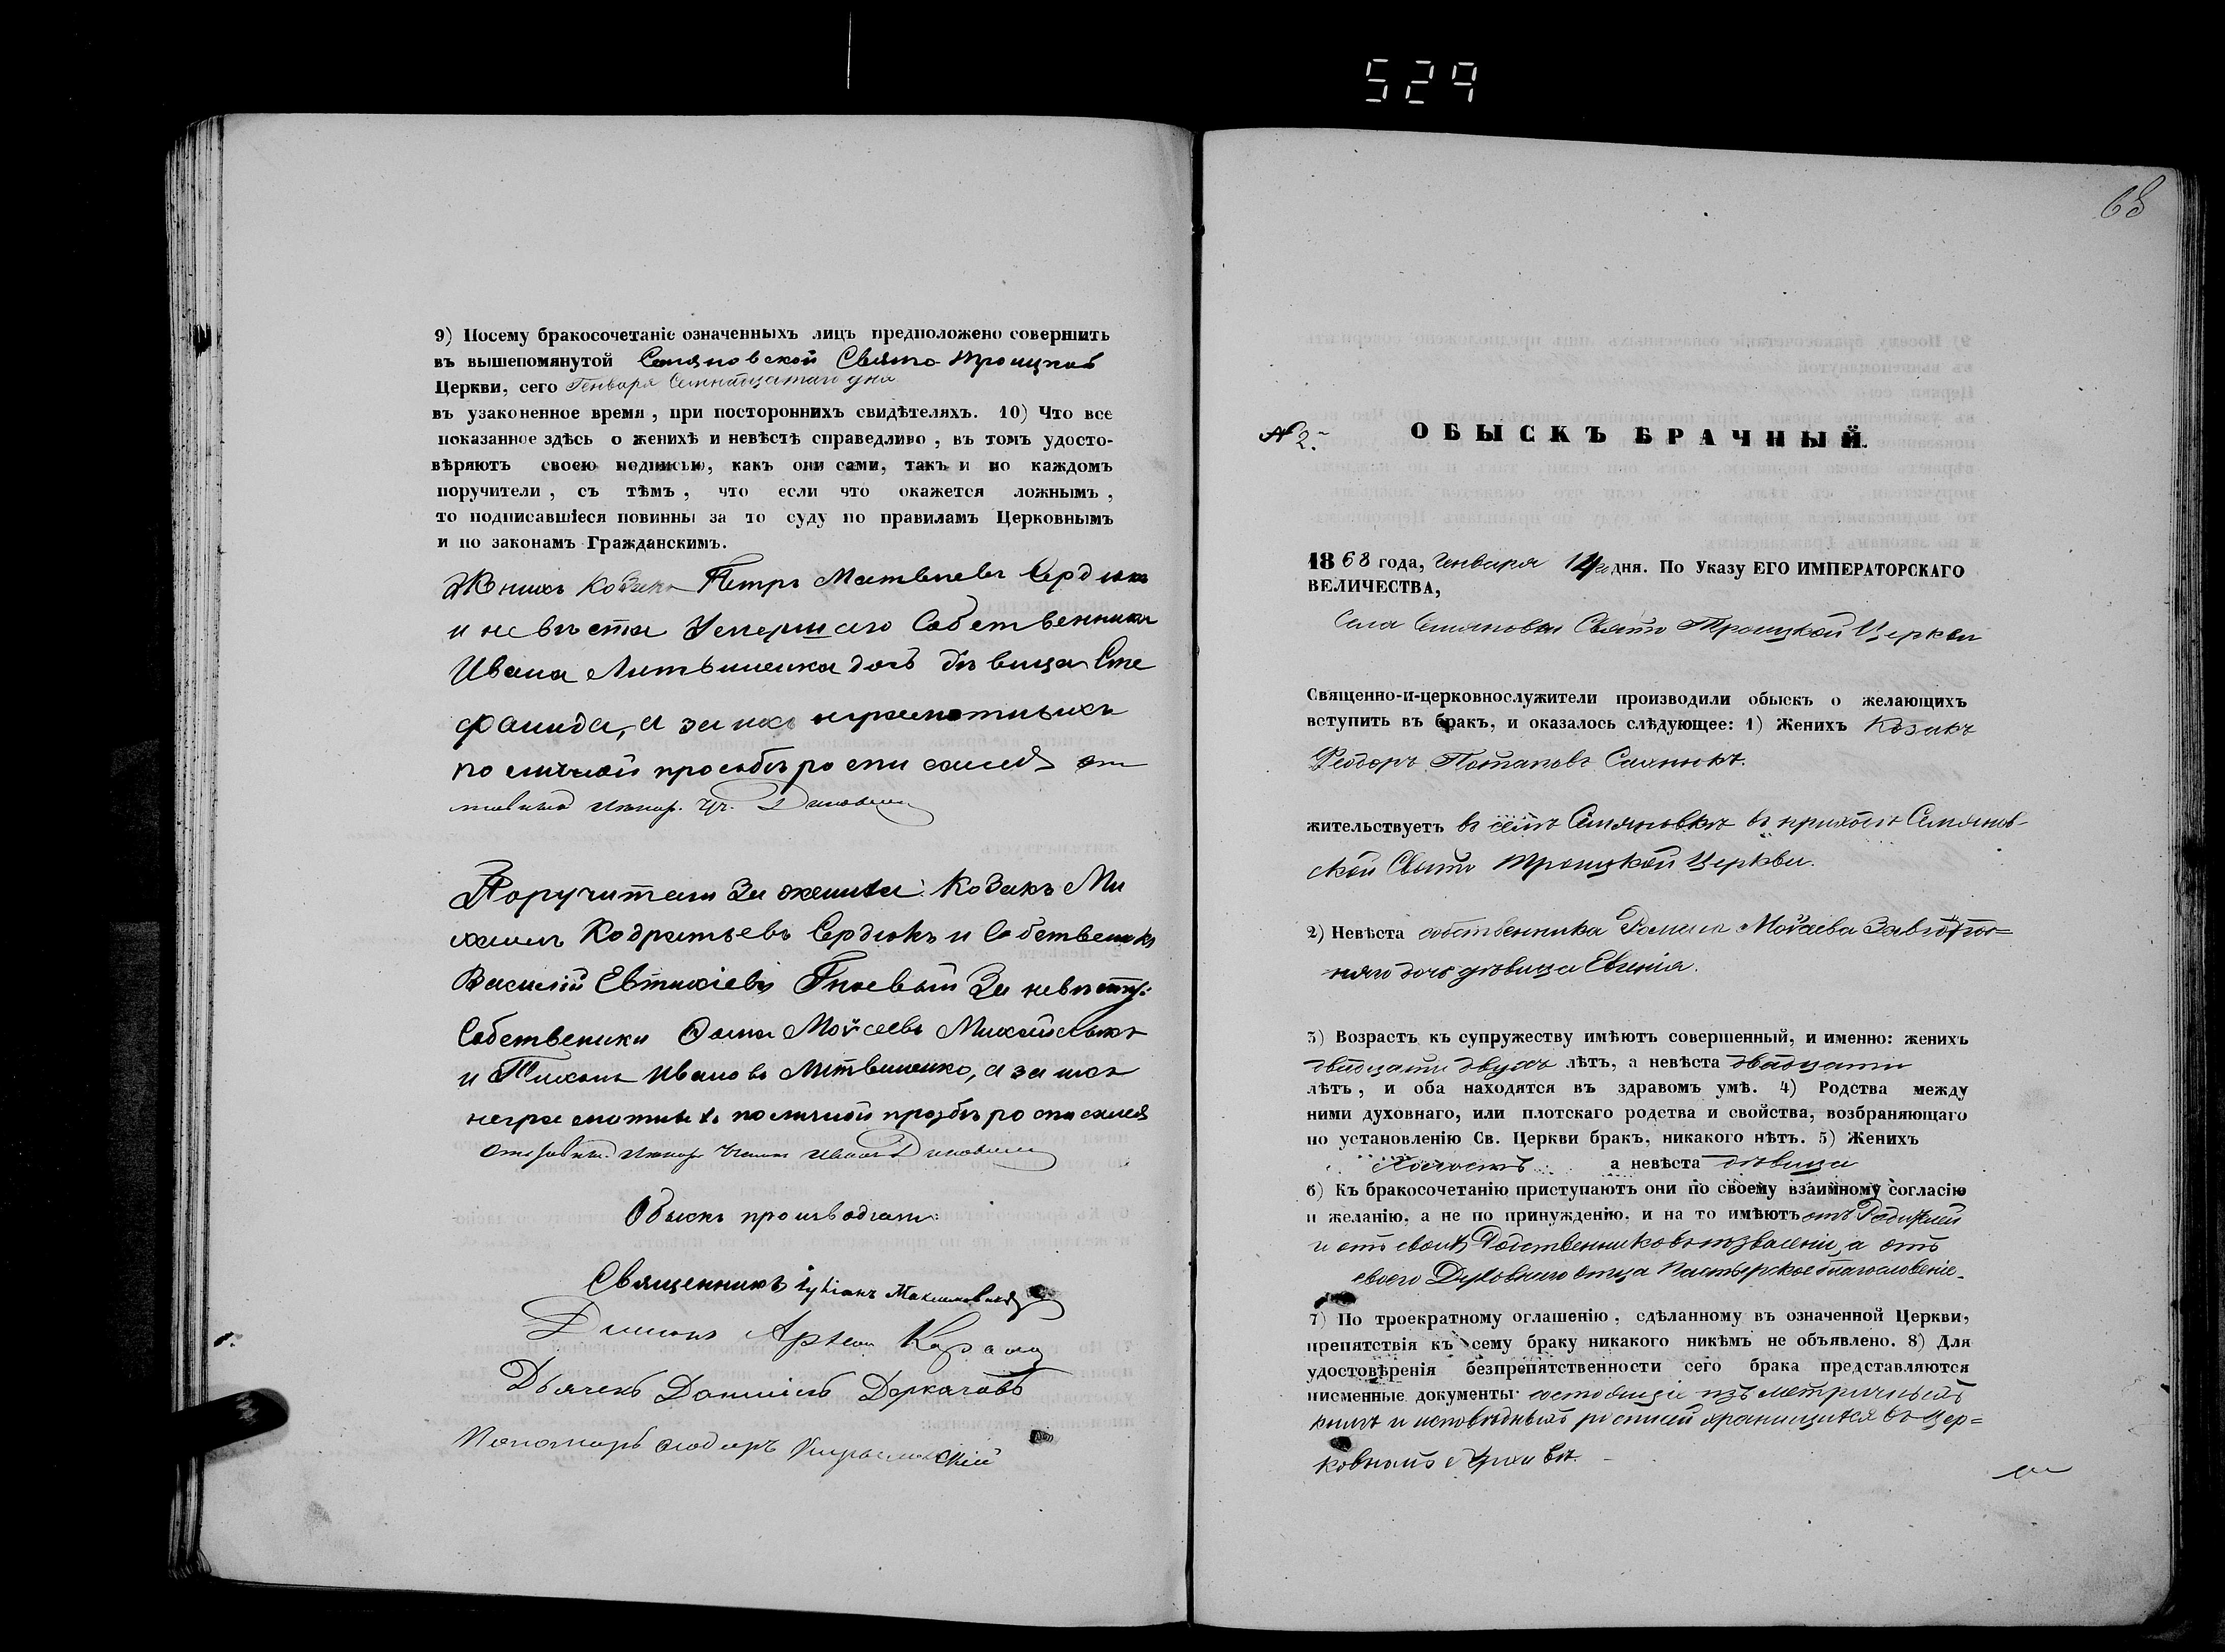 529
9) Посему бракосочетаніе означенныхъ лицъ предположено совершить
въ вышепомянутой Семяновской Свято Троицкой
Церкви, сего Генваря Семнатцатаго дня
въ узаконенное время, при постороннихъ свидѣтеляхъ. 10) Что все
показанное здѣсь о женихѣ и невѣстѣ справедливо, въ томъ удосто-
вѣряютъ своею подписью, какъ они сами, такъ и по каждомъ
поручители, съ тѣмъ, что если что окажется ложнымъ,
то подписавшіеся повинны за то суду по правиламъ Церковнымъ
и по законамъ Гражданскимъ.
Жених Козакъ Петръ Матвѣевъ Сердюкъ
и невѣста Умершаго Собственника
Ивана Литвиненка дочь дѣвица Сте
фанида, а за ихъ неграмотныхъ
по личной прозбѣ росписался от
Поручители За жениха: Козакъ Ми
хаилъ Кодратьевъ Сердюкъ и Собственикъ
Василій Евтихіевъ Гноевый За невѣсту:
Собственики Фома Мойсеевъ Михайлыкъ
и Тихонъ Ивановъ Литвиненко, а за ихъ
неграмотныхъ по личной прозбѣ росписался
Обыскъ производили:
Священникъ Іуліанъ Максимовичъ
Диконъ
Дьячекъ Даніилъ Деркачовъ
Пономарь
68
№ 2.
ОБЫСКЪ БРАЧНЫЙ.
1868 года, Генваря 14 дня. По Указу ЕГО ИМПЕРАТОРСКАГО
ВЕЛИЧЕСТВА,
Села Семяновки Свято Троицкой Церкви
Священно-и-церковнослужители производили обыскъ о желающихъ
вступить въ бракъ, и оказалось слѣдующее: 1) Женихъ Козакъ
Феодоръ Потаповъ Салныкъ.
жительствуетъ въ селѣ Семяновкѣ въ приходѣ Семянов-
ской Свято Троицкой Церкви.
2) Невѣста собственника Романа Мойсеева
дочь дѣвица Евгенія.
3) Возрастъ къ супружеству имѣютъ совершенный, и именно: женихъ
двадцати двухъ лѣтъ, а невѣста двадцати
лѣтъ, и оба находятся въ здравомъ умѣ. 4) Родства между
ними духовнаго, или плотскаго родства и свойства, возбраняющаго
по установленію Св. Церкви бракъ, никакого нѣтъ. 5) Женихъ
Холостъ а невѣста дѣвица
6) Къ бракосочетанію приступаютъ они по своему взаимному согласію
и желанію, а не по принужденію, и на то имѣютъ отъ Родителей
и отъ своихъ Родственниковъ позволеніе, а отъ
своего Духовнаго Отца Пастырское благословеніе.
7) По троекратному оглашенію, сдѣланному въ означенной Церкви,
препятствія къ сему браку никакого никѣмъ не объявлено. 8) Для
удостовѣренія безпрепятственности сего брака представляются
писменные документы: состоящіе изъ метричныхъ
книгъ и исповѣдныхъ росписей хранящихся въ Цер=
ковномъ Архивѣ.